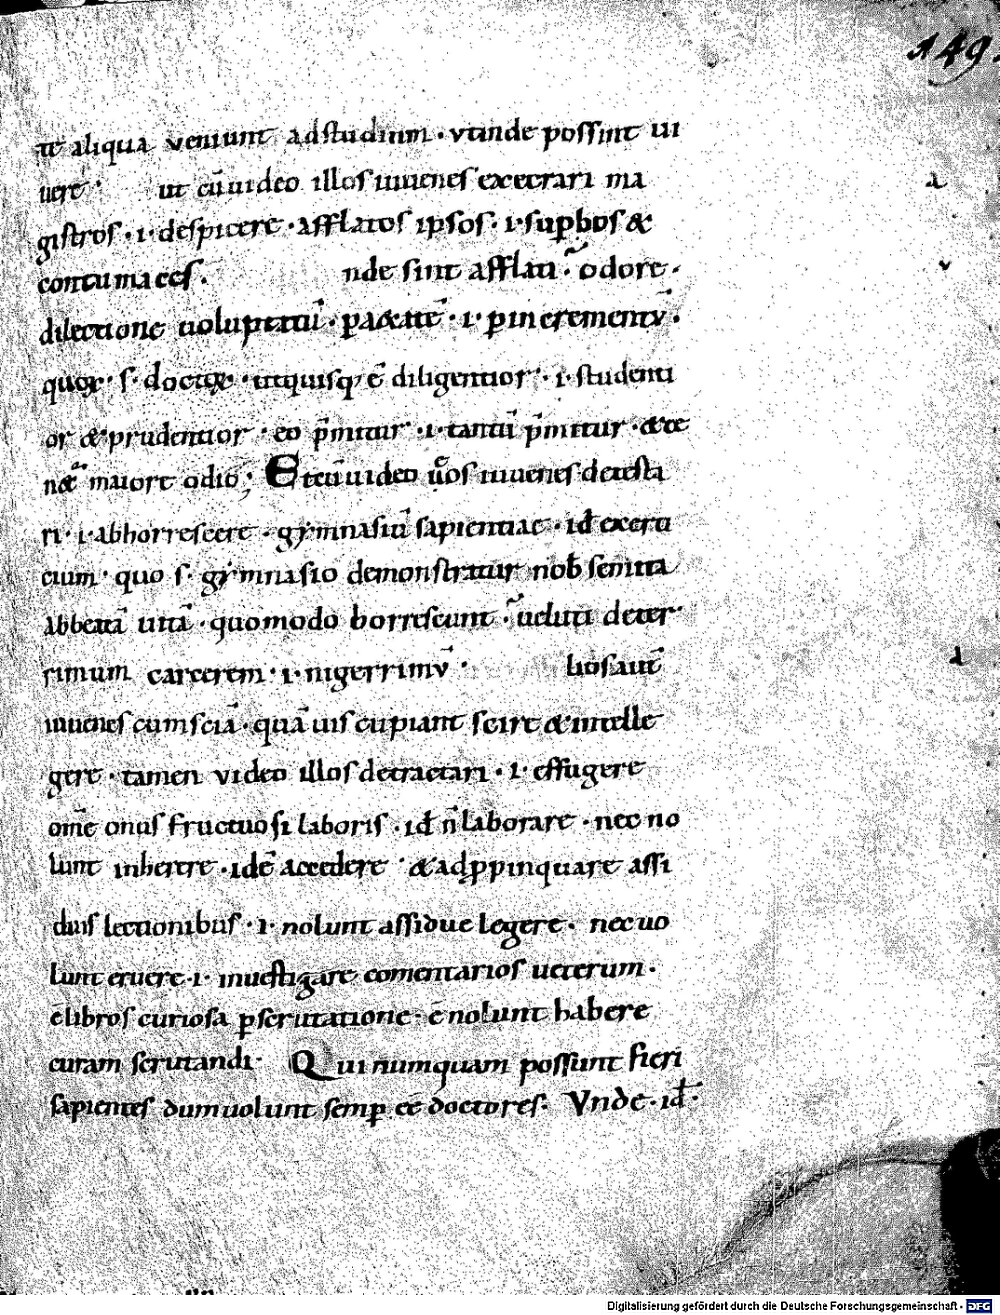 149.
te aliqua veniunt adstudium · vtinde possint ui
uere · ut cũ uideo illos iuuenes execrari ma
gistros · i · despicere · afflatos ipsos · i · supbos &
contumaces . nde sint afflati · odore ·
dilectione uoluptatũ · · i · p incrementũ ·
· s · doctae · utquisq; ẽ diligentior · i · studenti
or & prudentior · eo p̃mitur · i · tantũ p̃mitur ·
maiore odio ; Et cũ uideo ũos iuuenes detesta
ri · i · abhorrescere · gymnasiũ sapientiae · id̃ exerci
cium · quo s · gymnasio demonstratur nob̃ semita
uitã · quomodo horrescunt · ueluti deter
rimum carcerem · i · nigerrimũ · hos autẽ
iuuenes cum sciã · quã uis cupiant scire & intelle
gere · tamen video illos detractari · i · effugere
om̃e onus fructuosi laboris · id̃ ñ laborare · nec no
lunt inherere · idẽ accedere · & adppinquare assi
duis lectionibus · i · nolunt assidue legere · nec uo
lunt eruere · i · inuestigare comentarios ueterum ·
ẽ libros curiosa pscrutatione · ẽ nolunt habere
curam scrutandi · Qui numquam possunt fieri
sapientes dum uolunt semp eẽ doctores · Vnde · id̃ ·
Digitalisierung gefördert durch die Deutsche Forschungsgemeinschaft · DFG